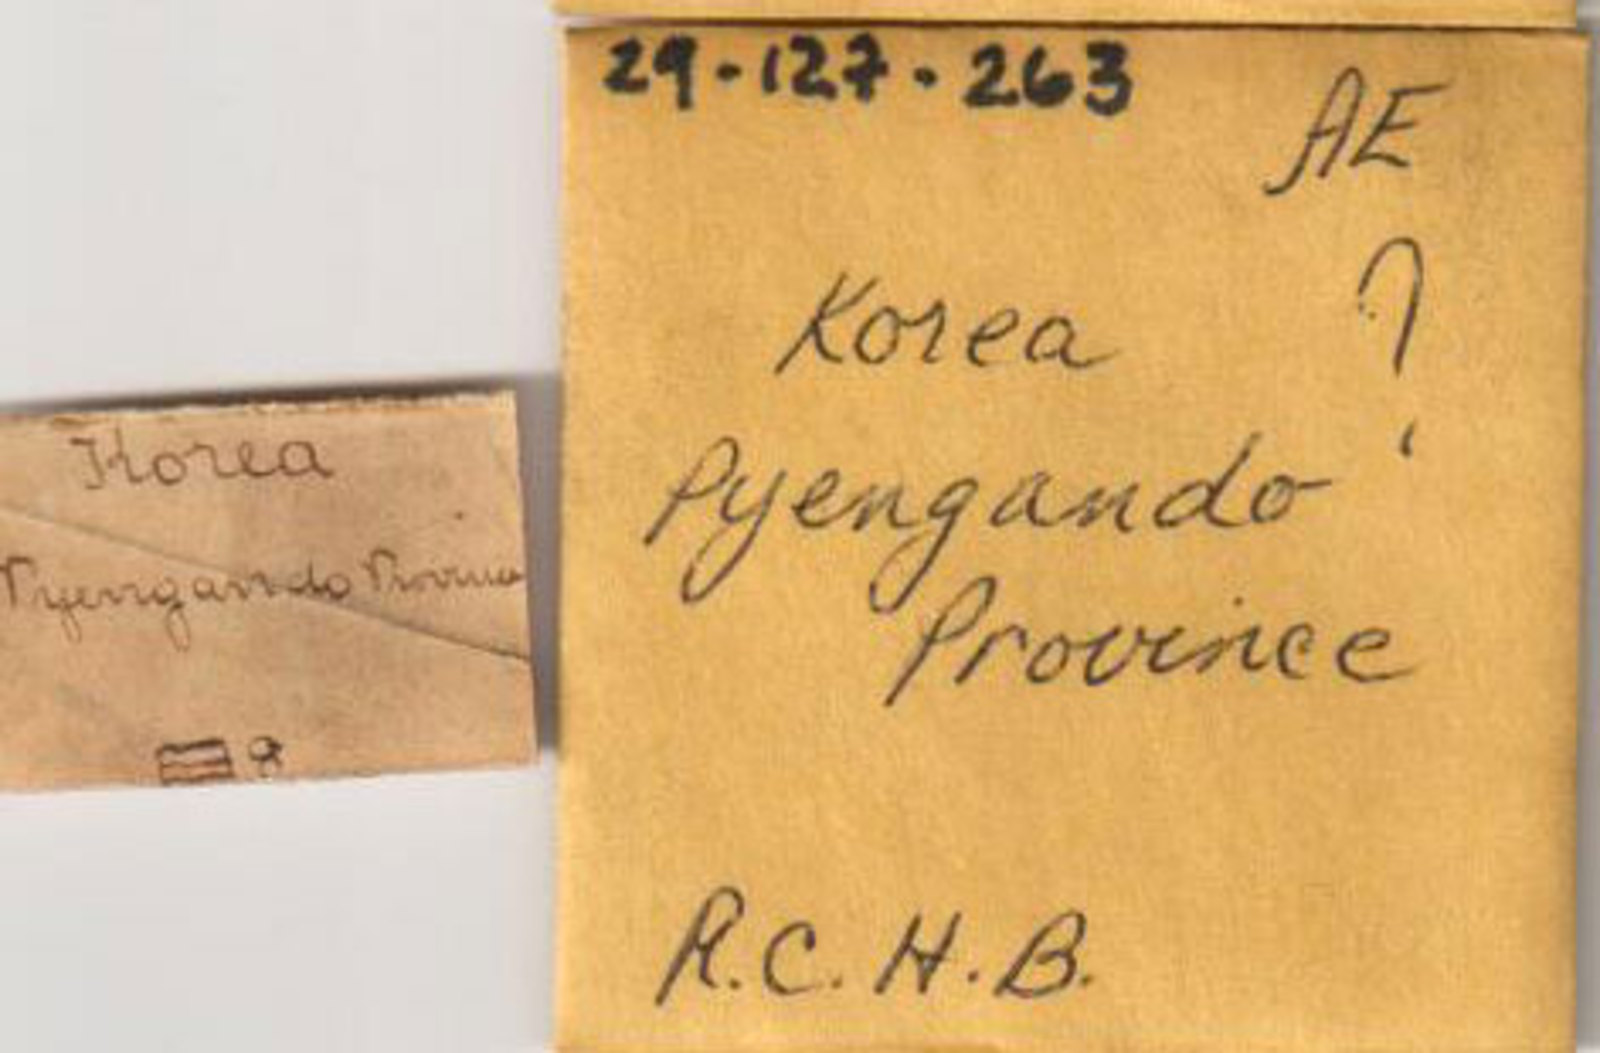 Korea
Pyengando Province
8
29-127-263
AE
?
Korea
Pyengando
Province
R.C.H.B.